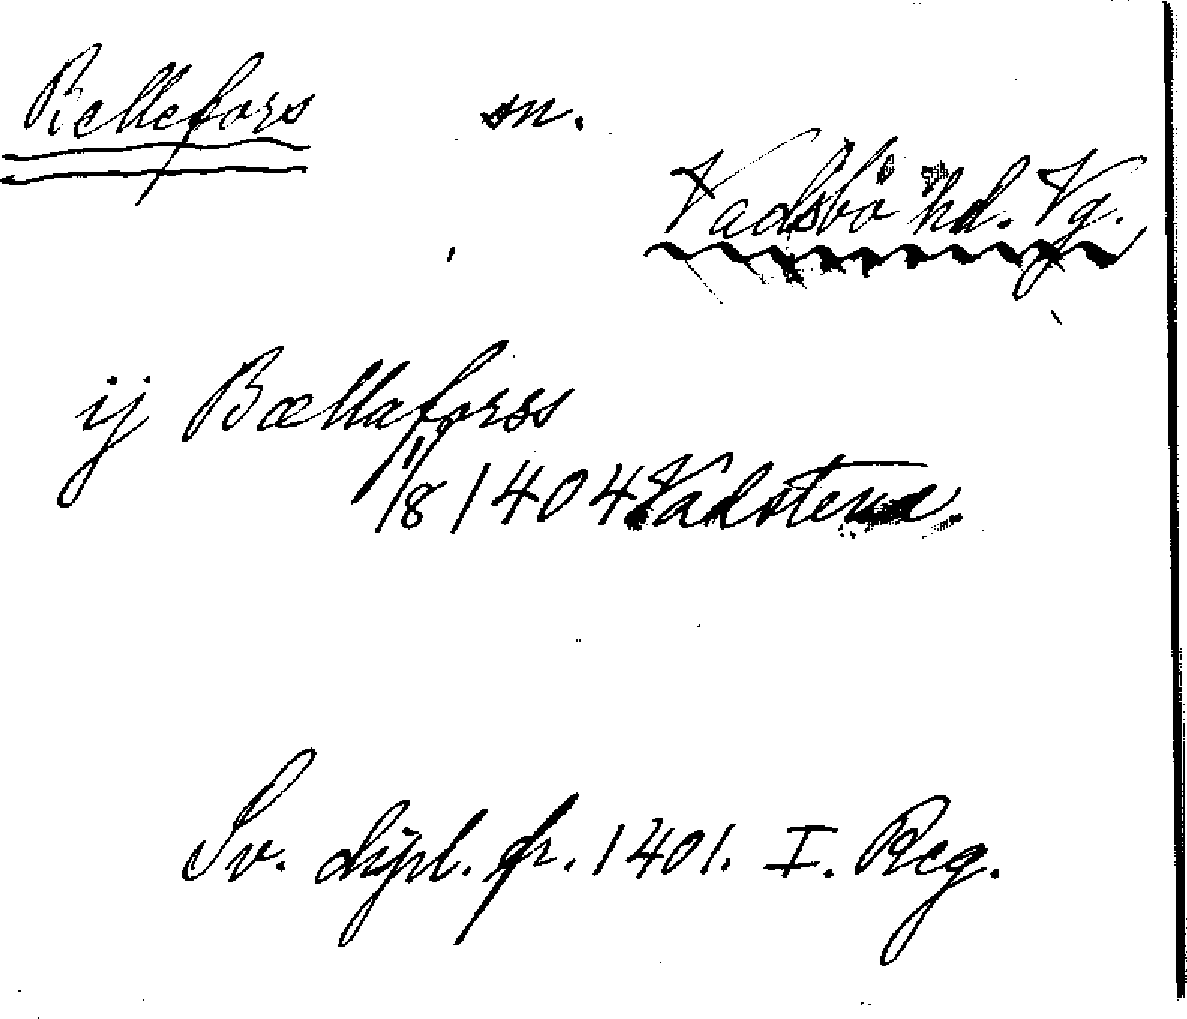 Bellefors sn.
Vadsbö hd. Vg.
ij Bællaforss
11/8 1404 Vadstena.
Sv. dipl. fr. 1401. I. Reg.